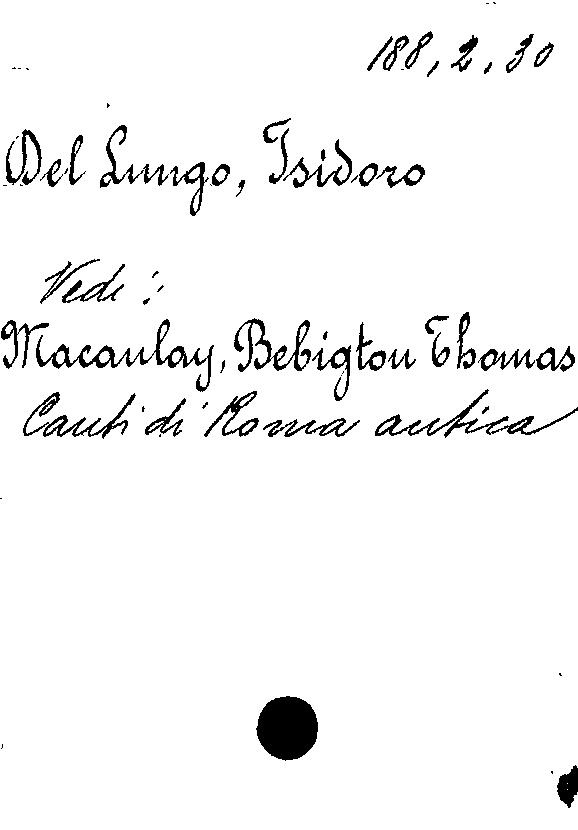 188, 2, 30
Del Lungo, Isidoro
Vedi:
Macaulay, Bebigton Thomas
Canti di Roma antica